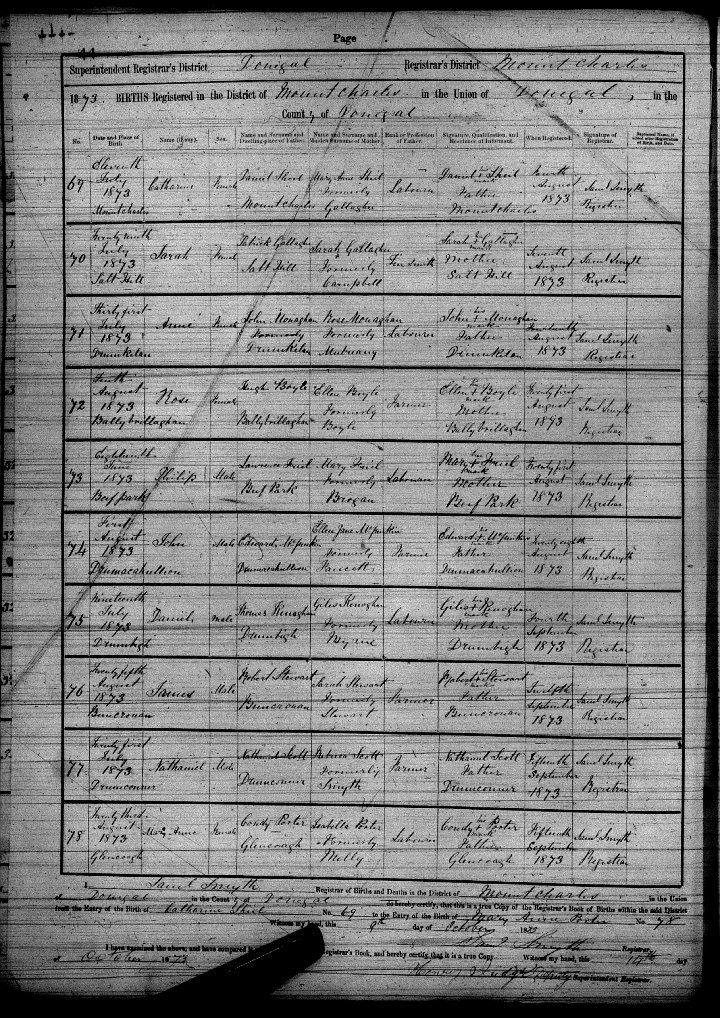 Page
44
Superintendent Registrar's District Donegal Registrar's District Mountcharles
1873. BIRTHS Registered in the District of Mountcharles in the Union of Donegal, in the
County of Donegal
No. Date and Place of Birth Name (if any). Sex. Name and Surname and Dwelling-place of Father. Name and Surname and Maiden Surname of Mother. Rank or Profession of Father. Signature, Qualification, and Residence of Informant. When Registered. Signature of Registrar.
69 Eleventh July 1873 Mountcharles Catharine Female Daniel Mountcharles Mary Ann formerly Gallagher Labourer Daniel Father Mountcharles Fourth August 1873 Saml Smyth Registrar
70 Twenty ninth July 1873 Salt Hill Sarah Female Patrick Gallagher Salt Hill Sarah Gallagher formerly Campbell Tin Smith Sarah Gallagher Mother Salt Hill Seventh August 1873 Saml Smyth Registrar
71 Thirty first July 1873 Drumkelan Anne Female John Monaghan Drumkelan Rose Monaghan formerly Labourer John Monaghan mark Father Drumkelan August 1873 Saml Smyth Registrar
72 Tenth August 1873 Ballybrillaghan Rose Female Hugh Boyle Ballybrillaghan Ellen Boyle formerly Boyle Farmer Ellen Boyle mark Mother Ballybrillaghan Twenty first August 1873 Saml Smyth Registrar
73 Eighteenth June 1873 Beef park Philip Male Lawrence Friel Beef Park Mary Friel formerly Brogan Labourer Mary Friel mark Mother Beef Park Twenty first August 1873 Saml Smyth Registrar
74 First August 1873 Drumacahullion John Male Edward Drumacahullion Ellen Jane formerly Farmer Edward Father Drumacahullion Twenty eighth August 1873 Saml Smyth Registrar
75 Nineteenth July 1873 Drumbigh Daniel Male Thomas Kenaghan Drumbigh Giles Kenaghan formerly Byrne Labourer Giles Kenaghan Mother Drumbigh Fourth September 1873 Saml Smyth Registrar
76 Twenty fifth August 1873 Buncronan James Male Robert Stewart Buncronan Sarah Stewart formerly Stewart Farmer Robert Stewart Father Buncronan Twelfth September 1873 Saml Smyth Registrar
77 Twenty first July 1873 Drumconner Nathaniel Male Nathaniel Scott Drumconner Rebecca Scott formerly Smyth Farmer Nathaniel Scott Father Drumconner Fifteenth September 1873 Saml Smyth Registrar
78 Twenty third August 1873 Glencoagh Mary Anne Female Condy Porter Glencoagh Isabella Porter formerly Melly Labourer Condy Porter mark Father Glencoagh Fifteenth September 1873 Saml Smyth Registrar
Saml Smyth Registrar of Births and Deaths in the District of Mountcharles in the Union
of Donegal in the County of Donegal do hereby certify, that this is a true Copy of the Registrar's Book of Births within the said District
from the Entry of the Birth of Catharine No. 69 to the Entry of the Birth of Mary Anne Porter No. 78
Witness my hand, this 9th day of October 1873
Saml Smyth Registrar
I have examined the above, and have compared it Registrar's Book, and hereby certify that it is a true Copy Witness my hand, this 14th day
of October 1873 Superintendent Registrar.